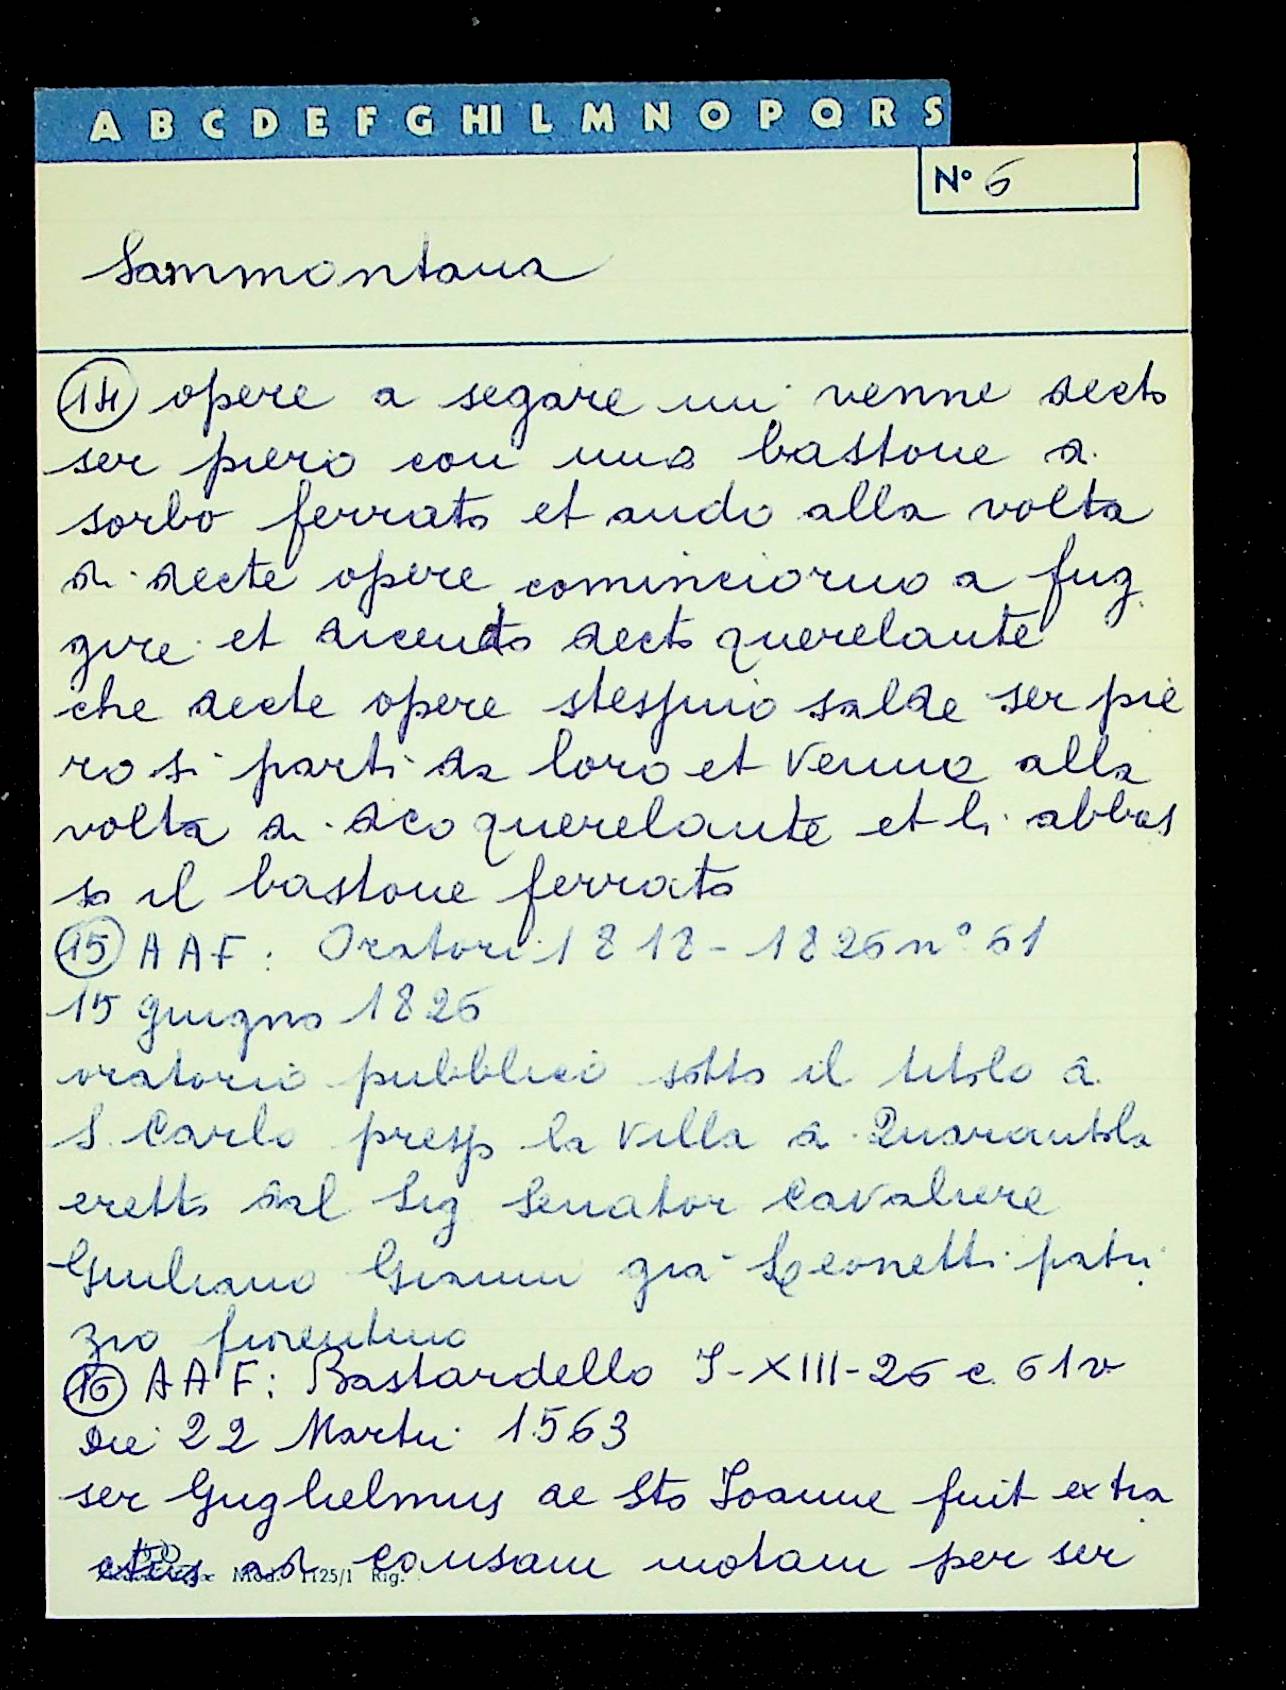 A B C D E F G HI L M N O P Q R S
N° 6
Sammontana
14 opere a segare vi venne decto
ser piero con uno bastone di
sorbo ferrato et ando alla volta
di decte opere cominciorno a fug
gire et dicendo decto querelante
che decte opere stessino salde ser pie
ro si parti da loro et venne alla
volta di dco querelante et li abbas
so il bastone ferrato
15 AAF: Oratori 1818-1826 n° 61
15 giugno 1826
oratorio pubblico sotto il titolo di
S. Carlo presso la villa di Quarantola
eretto dal Sig Senator Cavaliere
Giuliano Gianni già Leonetti patri
zio fiorentino
16 AAF: Bastardello I-XIII-26 c. 61v
Die 22 Martii 1563
ser Guglielmus de Sto Joanne fuit extra
ctus ad causam motam per ser
Mod. 1125/1 Rig.